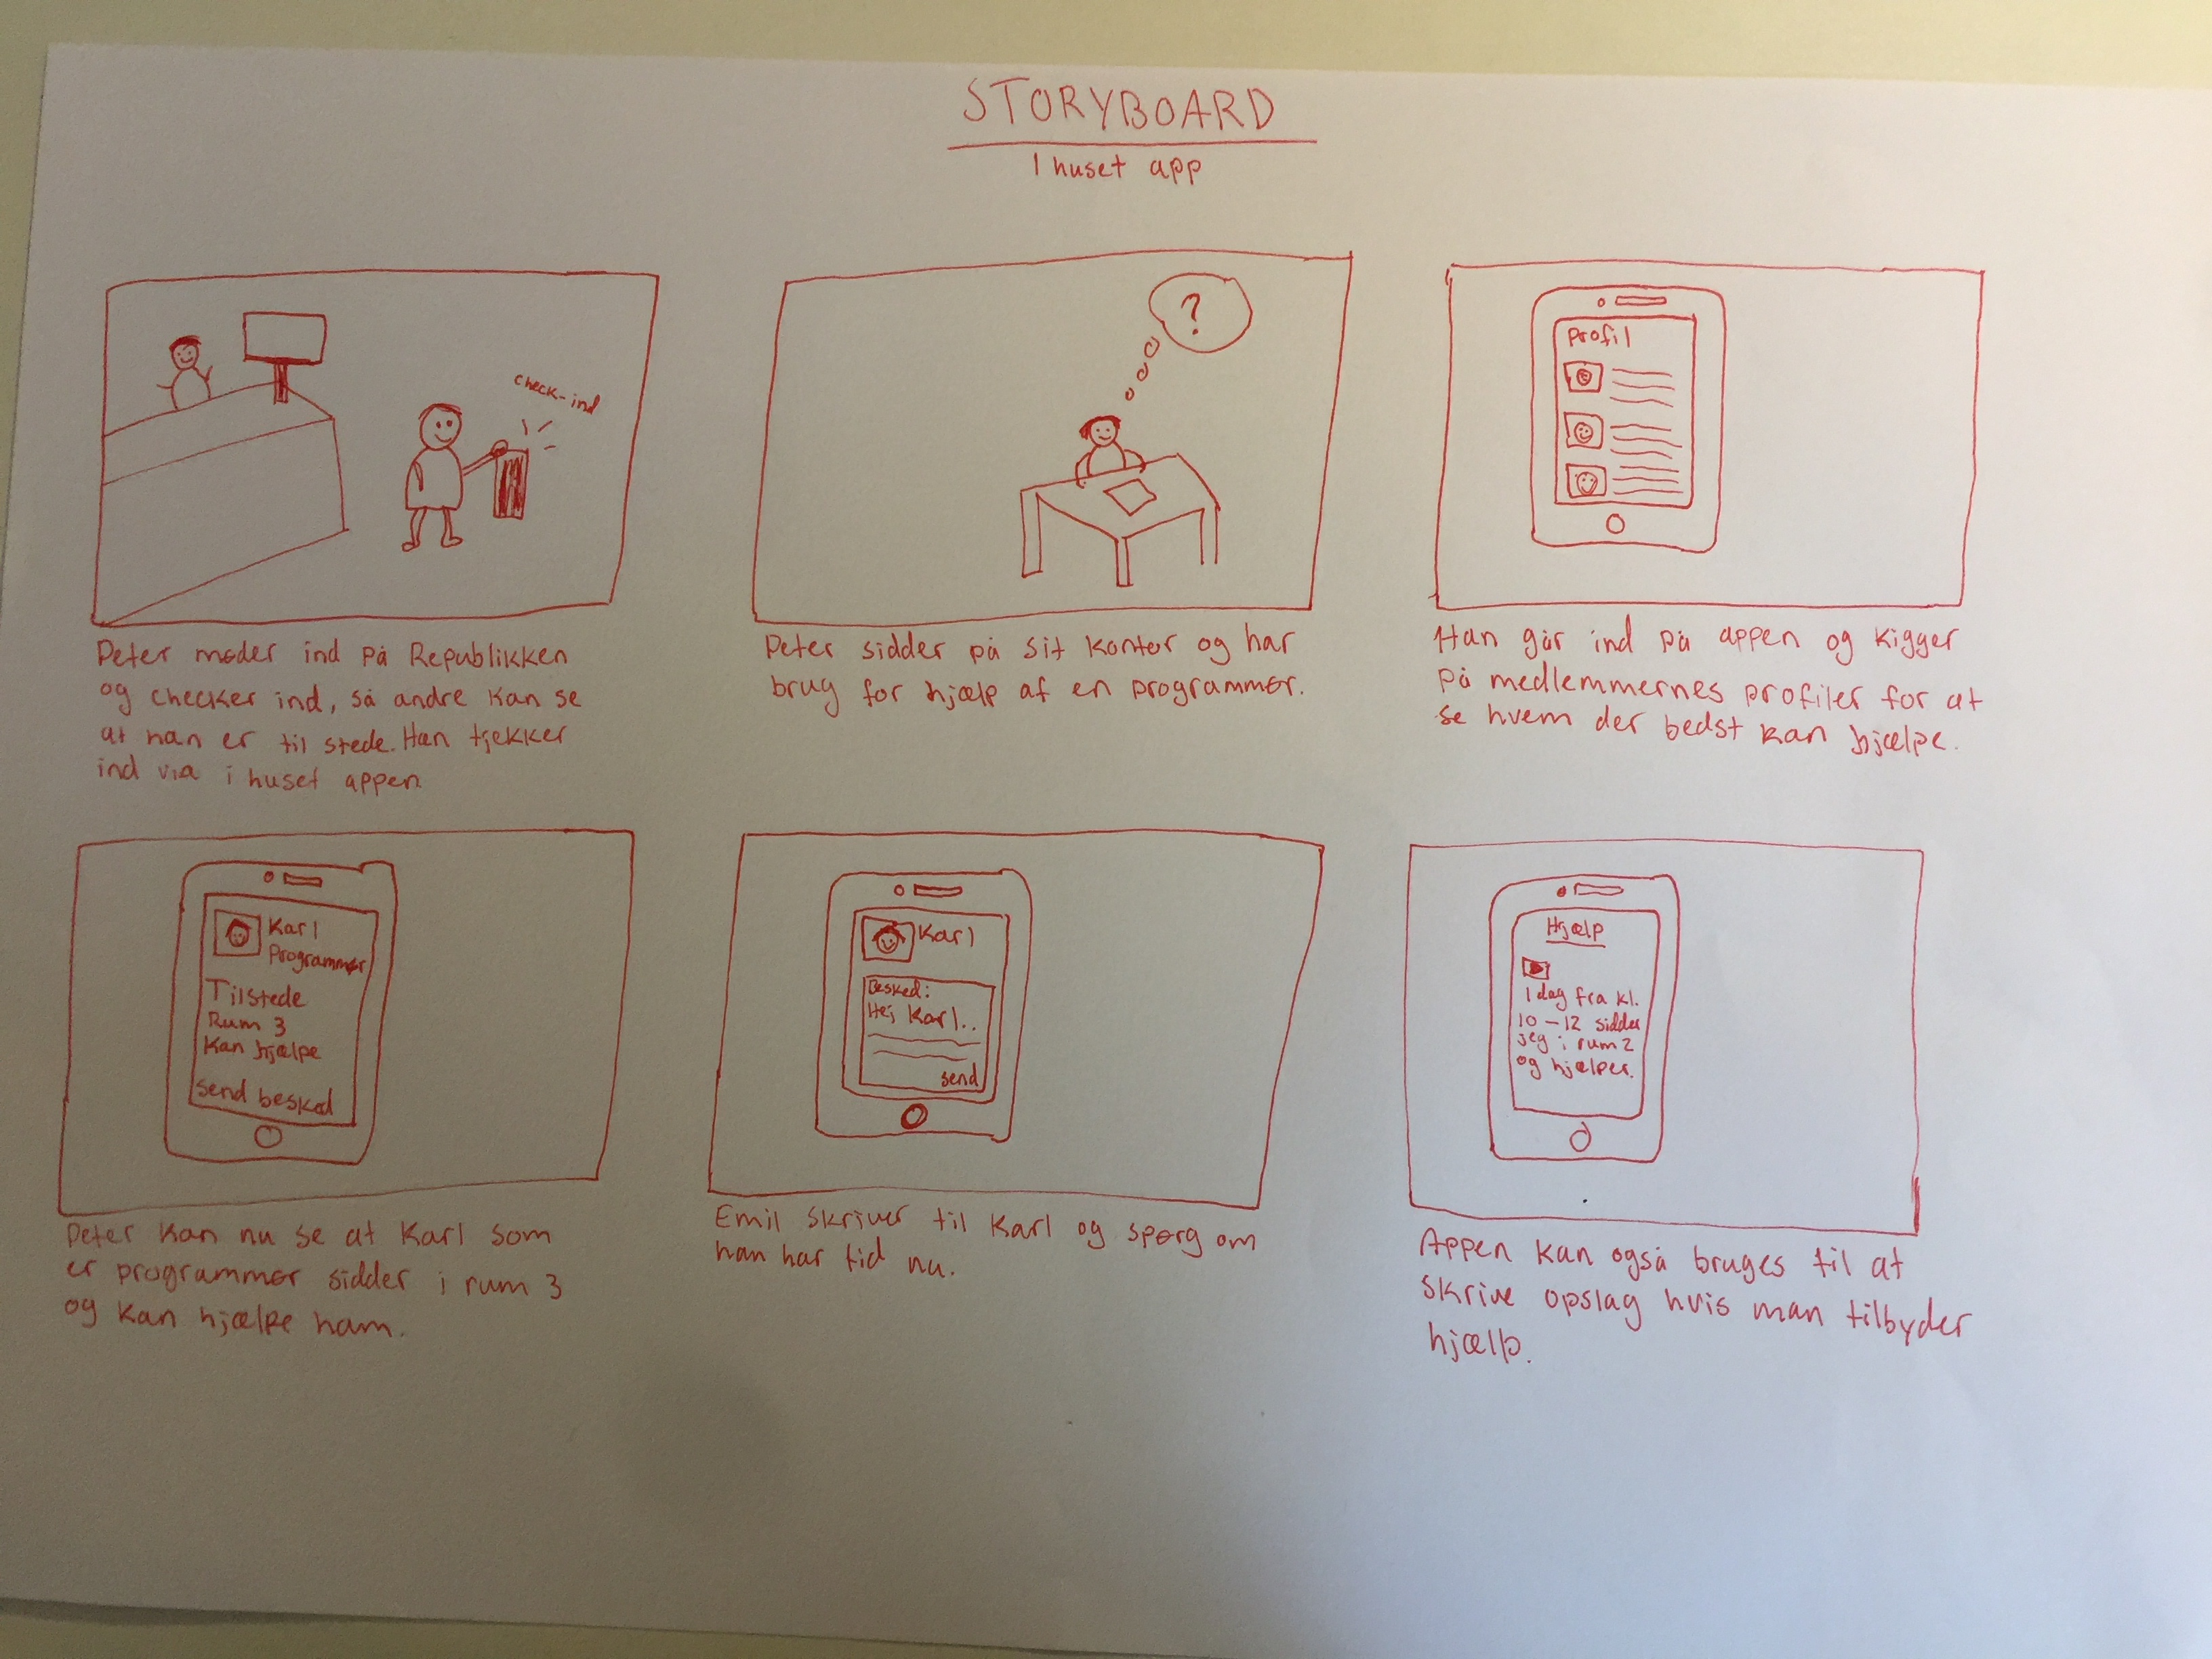 STORYBOARD
I huset app
check-ind
Peter møder ind på Republikken
og checker ind, så andre kan se
at han er til stede. Han tjekker
ind via i huset appen
?
Peter sidder på sit kontor og har
brug for hjælp af en programmør.
Profil
Han går ind på appen og kigger
på medlemmernes profiler for at
se hvem der bedst kan hjælpe.
Karl
Programmør
Tilstede
Rum 3
Kan hjælpe
Send besked
Peter kan nu se at Karl som
er programmør sidder i rum 3
og kan hjælpe ham.
Karl
Besked:
Hej Karl..
send
Emil skriver til Karl og spørg om
han har tid nu.
Hjælp
I dag fra kl.
10 - 12 sidder
jeg i rum 2
og hjælper.
Appen kan også bruges til at
skrive opslag hvis man tilbyder
hjælp.